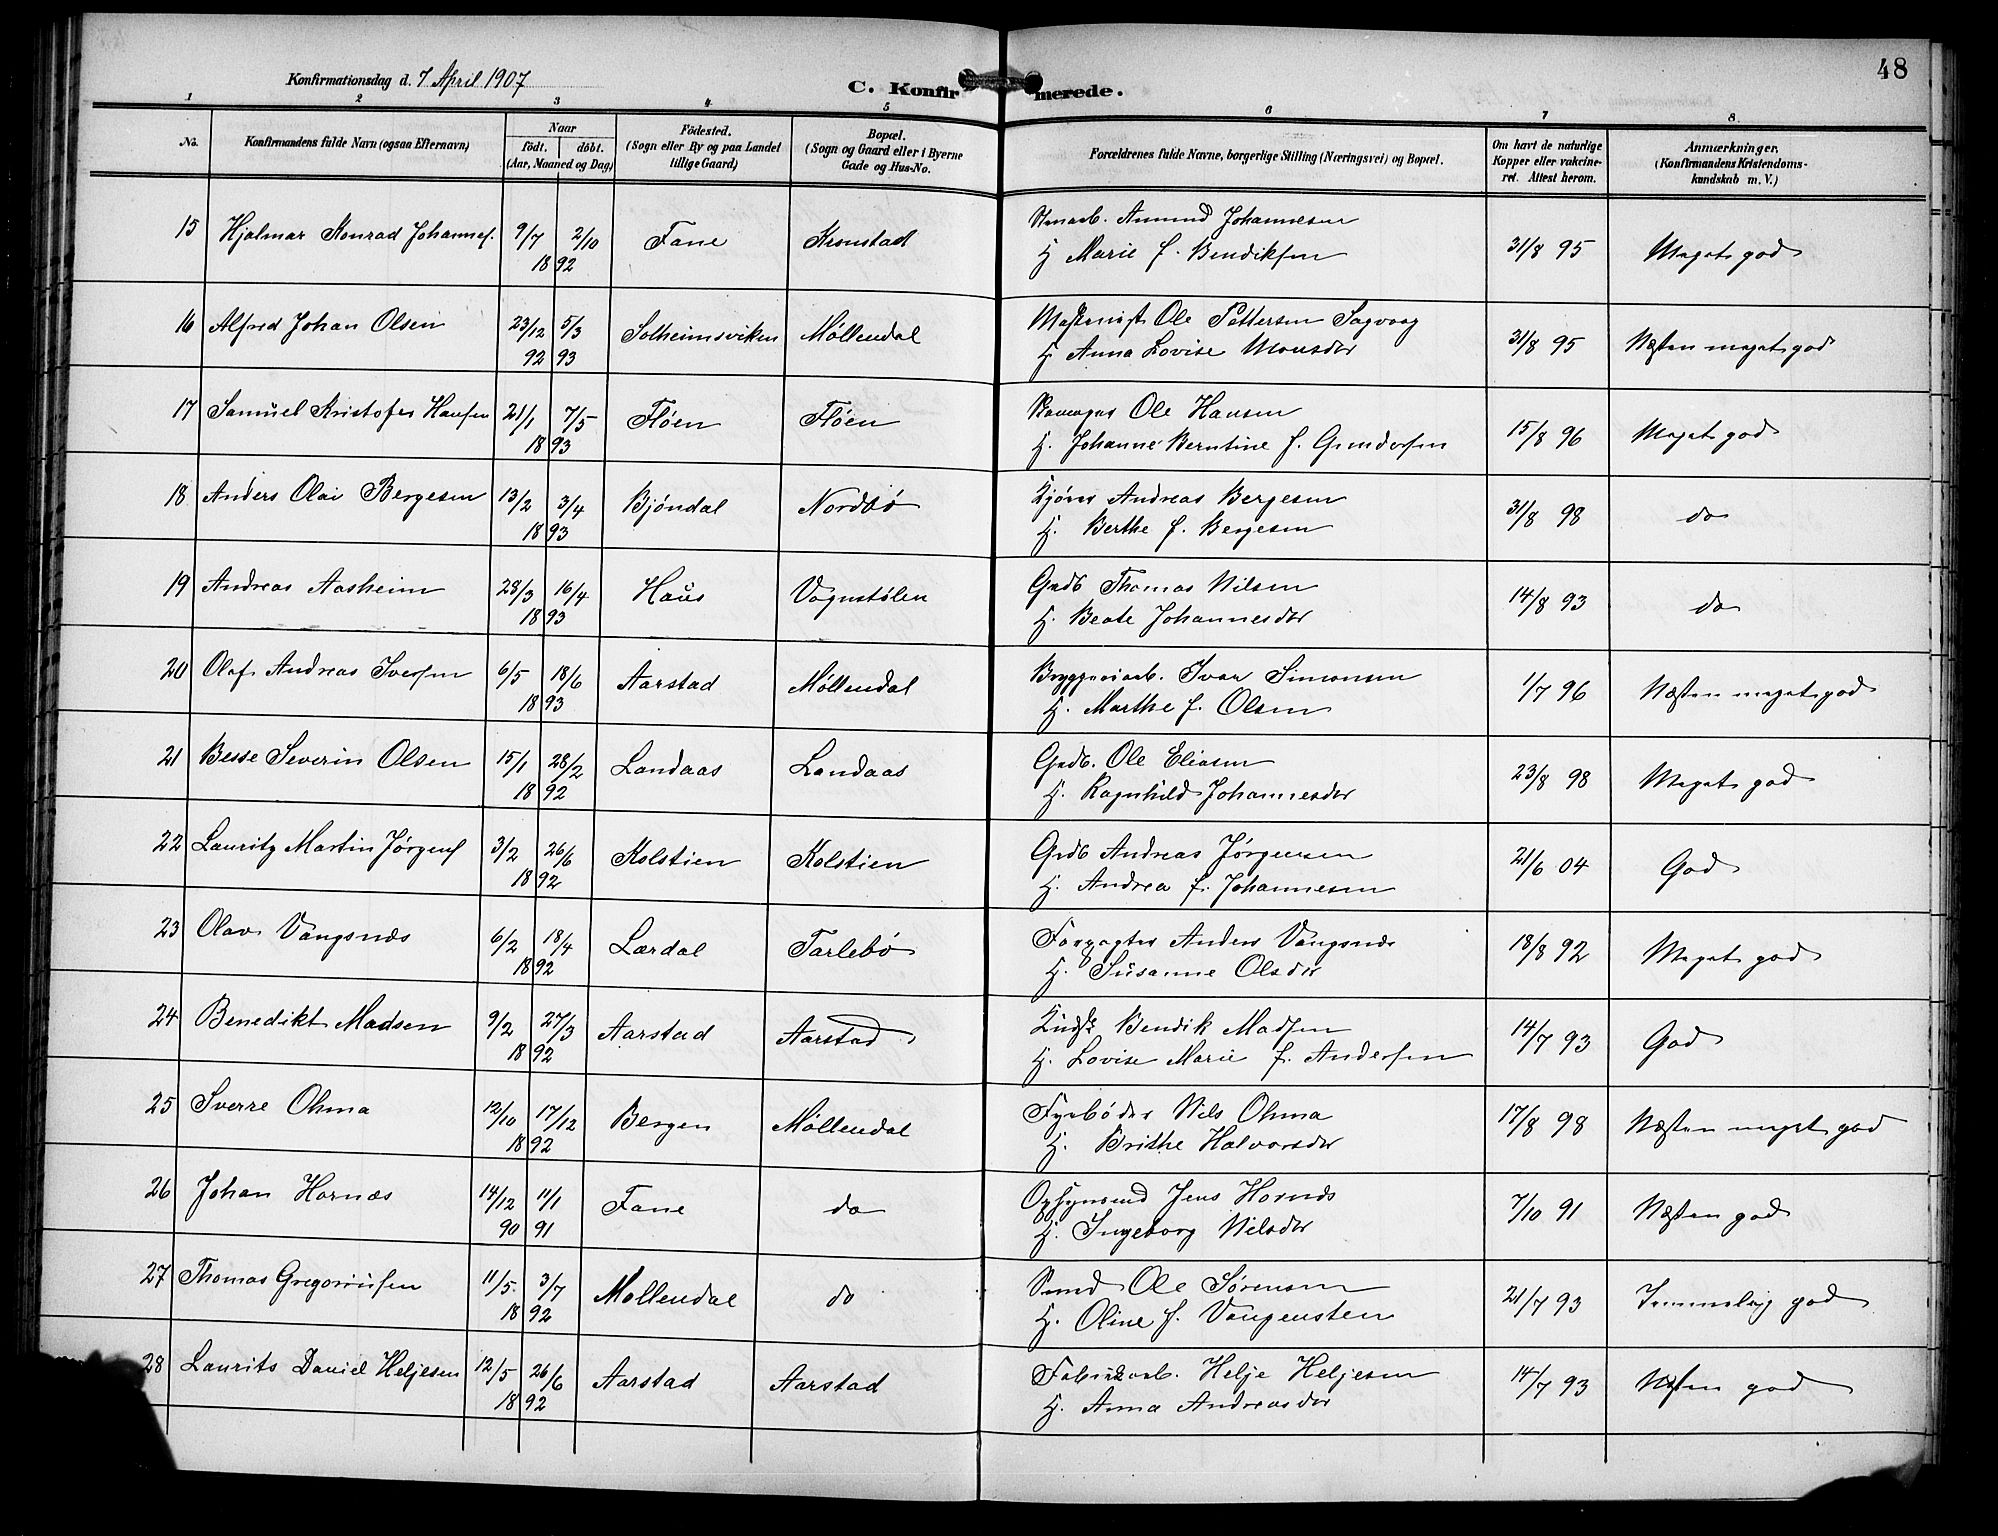 48
Konfirmationsdag d. 7 April 1907
C. Konfirmerede.
1 2 3 4 5 6 7 8
No. Konfirmandens fulde Navn (ogsaa Efternavn) Naar født. døbt. (Aar, Maaned og Dag) Födested. (Sogn eller By og paa Landet tillige Gaard) Bopæl. (Sogn og Gaard eller i Byerne Gade og Hus-No. Forældrenes fulde Navne, borgerlige Stilling (Næringsvei) og Bopæl. Om havt de naturlige Kopper eller vakcineret. Attest herom. Anmærkninger. (Konfirmandens Kristendomskundskab m. V.)
15 Hjalmar Konrad Johannes. 9/7 2/10 1892 Fane Kronstad Amund Johannesen
H Marie f. Bendiksen 31/8 95 Meget god
16 Alfred Johan Olsen 23/12 92 5/3 93 Solheimsviken Møllendal Ole Pettersen Sagvaag
H. Anna Lovise Monsdtr 31/8 95 Næsten meget god
17 Samuel Kristofer Hansen 21/1 7/5 1893 Fløen Fløen Ole Hansen
H. Johanne Berntine f. Gundersen 15/8 96 Meget god
18 Anders Olai Bergesen 13/2 3/4 1893 Bjöndal Nordbø Kjører Andreas Bergesen
H. Berthe f. Bergesen 31/8 98 do
19 Andreas Aasheim 28/3 16/4 1893 Haus Vognstølen Grdb Thomas Nilsen
H. Beate Johannesdtr 14/8 93 do
20 Olaf Andreas Iversen 6/5 18/6 1893 Aarstad Møllendal Bryggeriarb. Ivar Simonsen
H. Marthe f. Olsen 1/7 96 Næsten meget god
21 Besse Severin Olsen 15/1 28/2 1892 Landaas Landaas Grdb. Ole Eliasen
H. Ragnhild Johannesdtr 23/8 98 Meget god
22 Lauritz Martin Jørgens 3/2 26/6 1892 Kolstien Kolstien Grdb Andreas Jørgensen
H. Andrea f. Johannesen 21/6 04 God
23 Olav Vangsnæs 6/2 18/4 1892 Lærdal Tarlebø Forpagter Anders Vangsnæs
H. Susanne Olsdtr 18/8 92 Meget god
24 Benedikt Madsen 9/2 27/3 1892 Aarstad Aarstad Kudsk Bendik Madsen
H. Lovise Marie f. Andersen 14/7 93 God
25 Sverre Ohma 12/10 17/12 1892 Bergen Møllendal Fyrbøder Nils Ohma
H. Brithe Halvorsdtr 17/8 98 Næsten meget god
26 Johan Hornæs 14/12 90 11/1 91 Fane do Opsynsmd Jens Hornæs
H. Ingeborg Nilsdtr 7/10 91 Næsten god
27 Thomas Gregoriusen 11/5 3/7 1892 Møllendal do Smed Ole Sørensen
H. Oline f. Vangensten 21/7 93 Temmelig god
28 Laurits Daniel Heljesen 12/5 26/6 1892 Aarstad Aarstad Fabrikarb. Helje Heljesen
H. Anna Andreasdtr 14/7 93 Næsten god